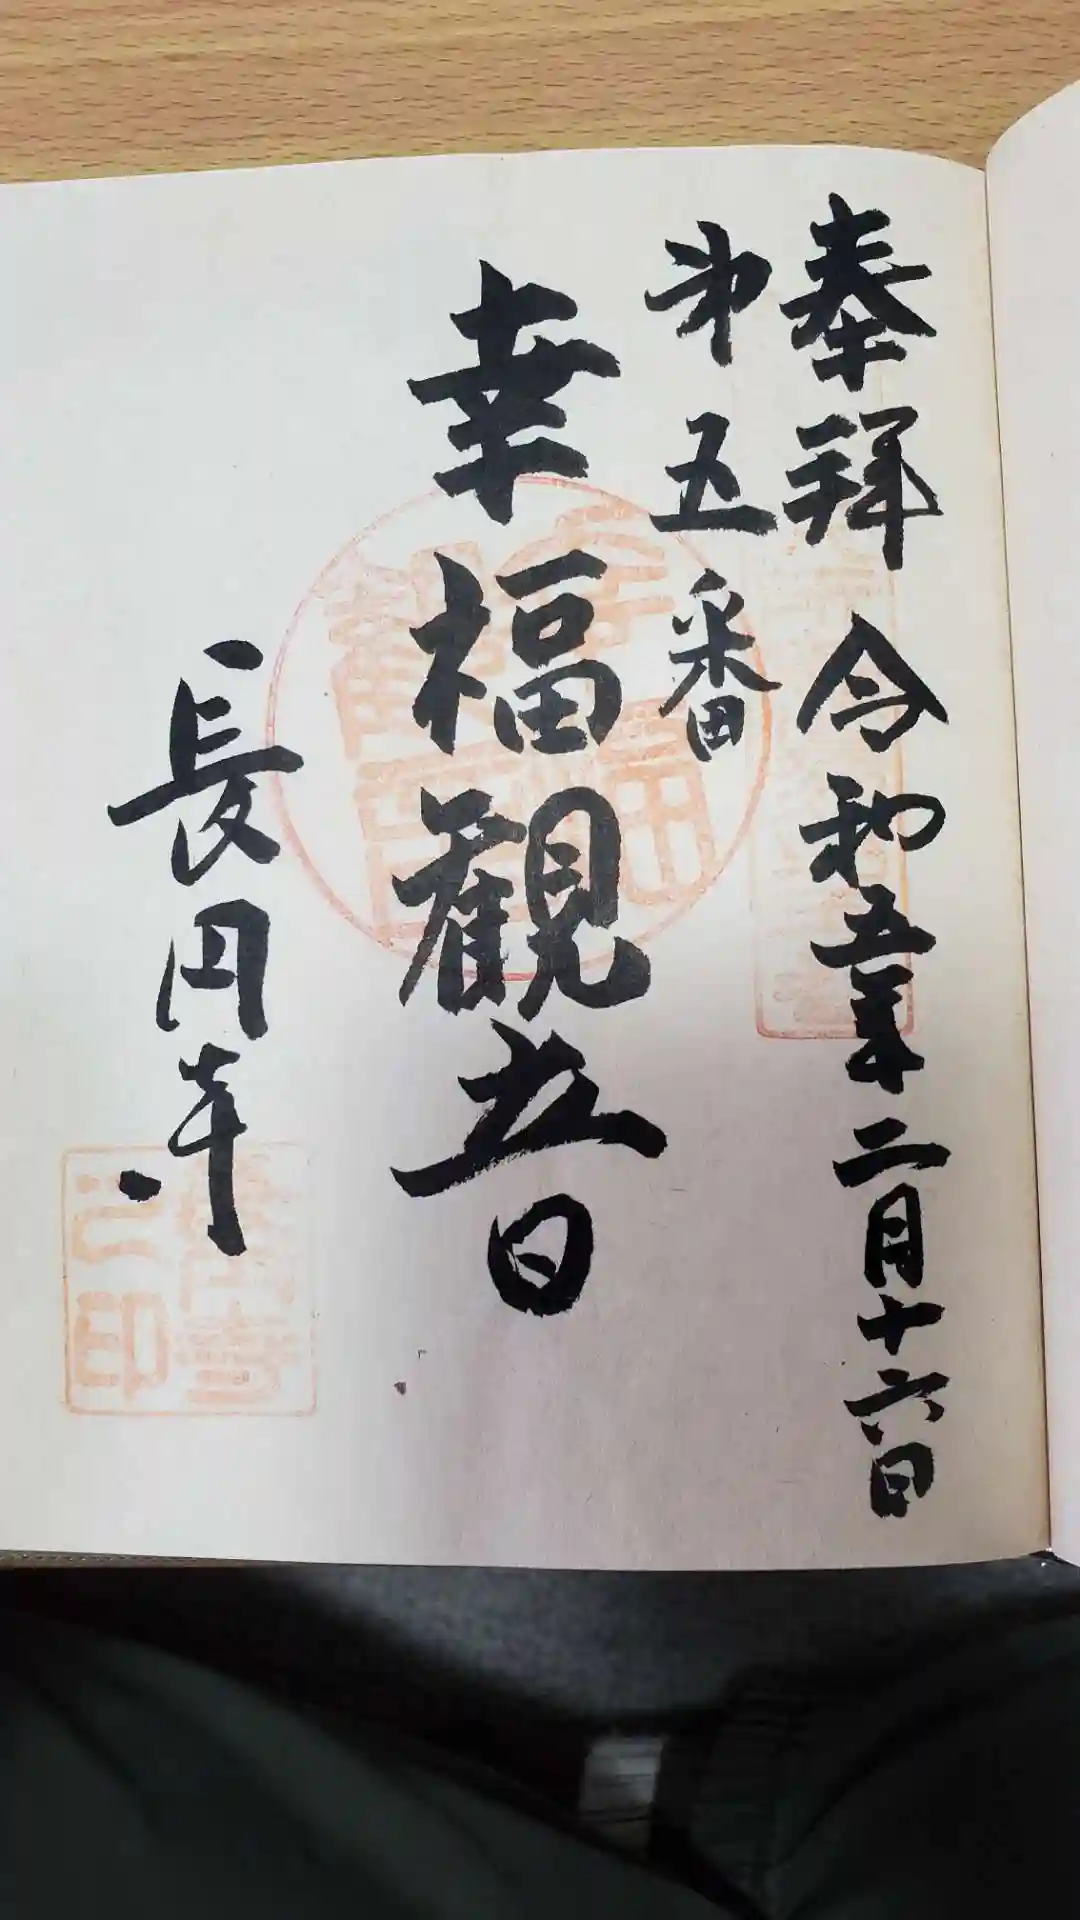 奉拝 令和五年二月十六日
第五番
幸福観音
長円寺
之印